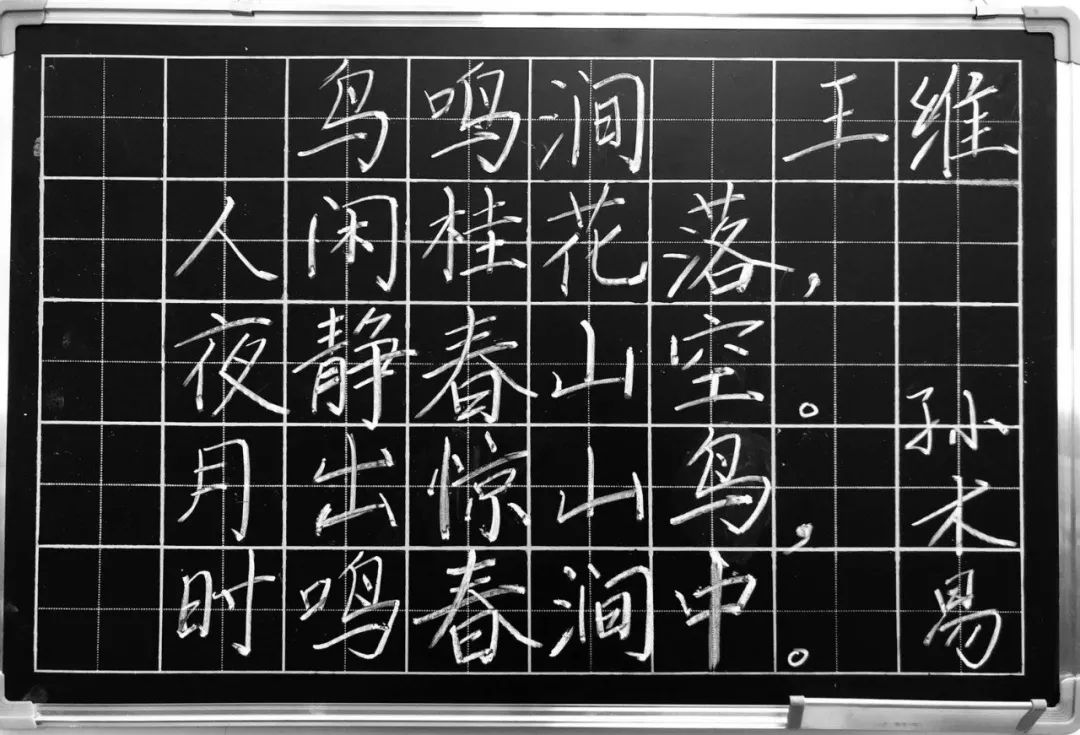 鸟鸣涧 王维
人闲桂花落，
夜静春山空。
月出惊山鸟，
时鸣春涧中。
孙术